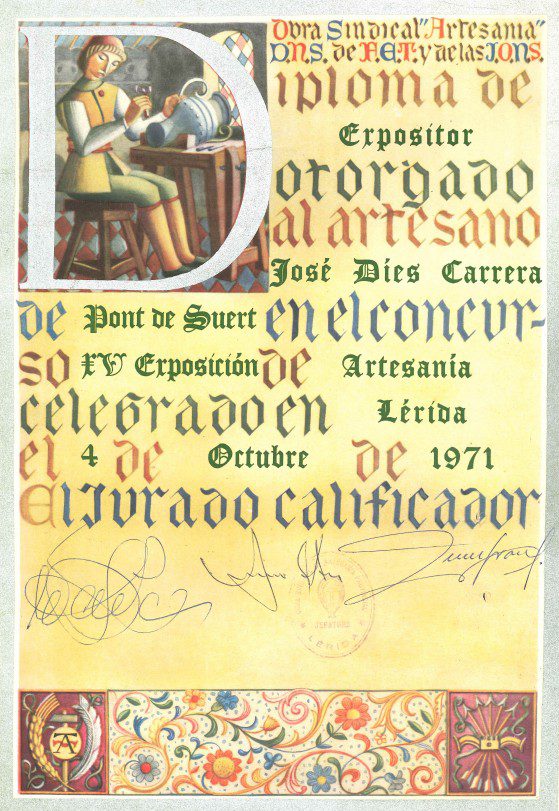 Obra Sindical "Artesania"
D.N.S. de F.E.T. y de las J.O.N.S.
Diploma de
Expositor
otorgado
al artesano
José Dies Carrera
de Pont de Suert en el concur-
so XV Exposición de Artesanía
celebrado en Lérida
el 4 de Octubre de 1971
El Jurado calificador
JEFATURA
LÉRIDA